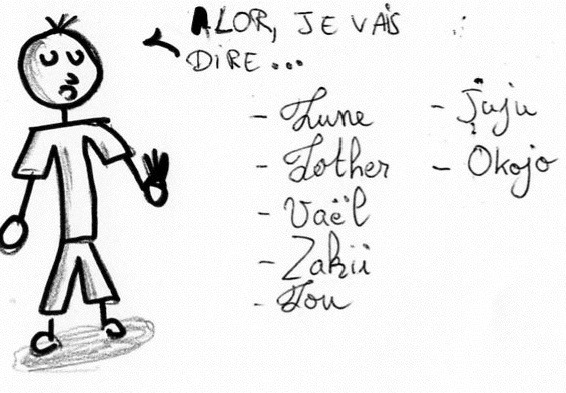 ALOR, JE VAIS
DIRE...
- Lune
- Lother
- Vaël
- Zakii
- Lou
- Juju
- Okojo